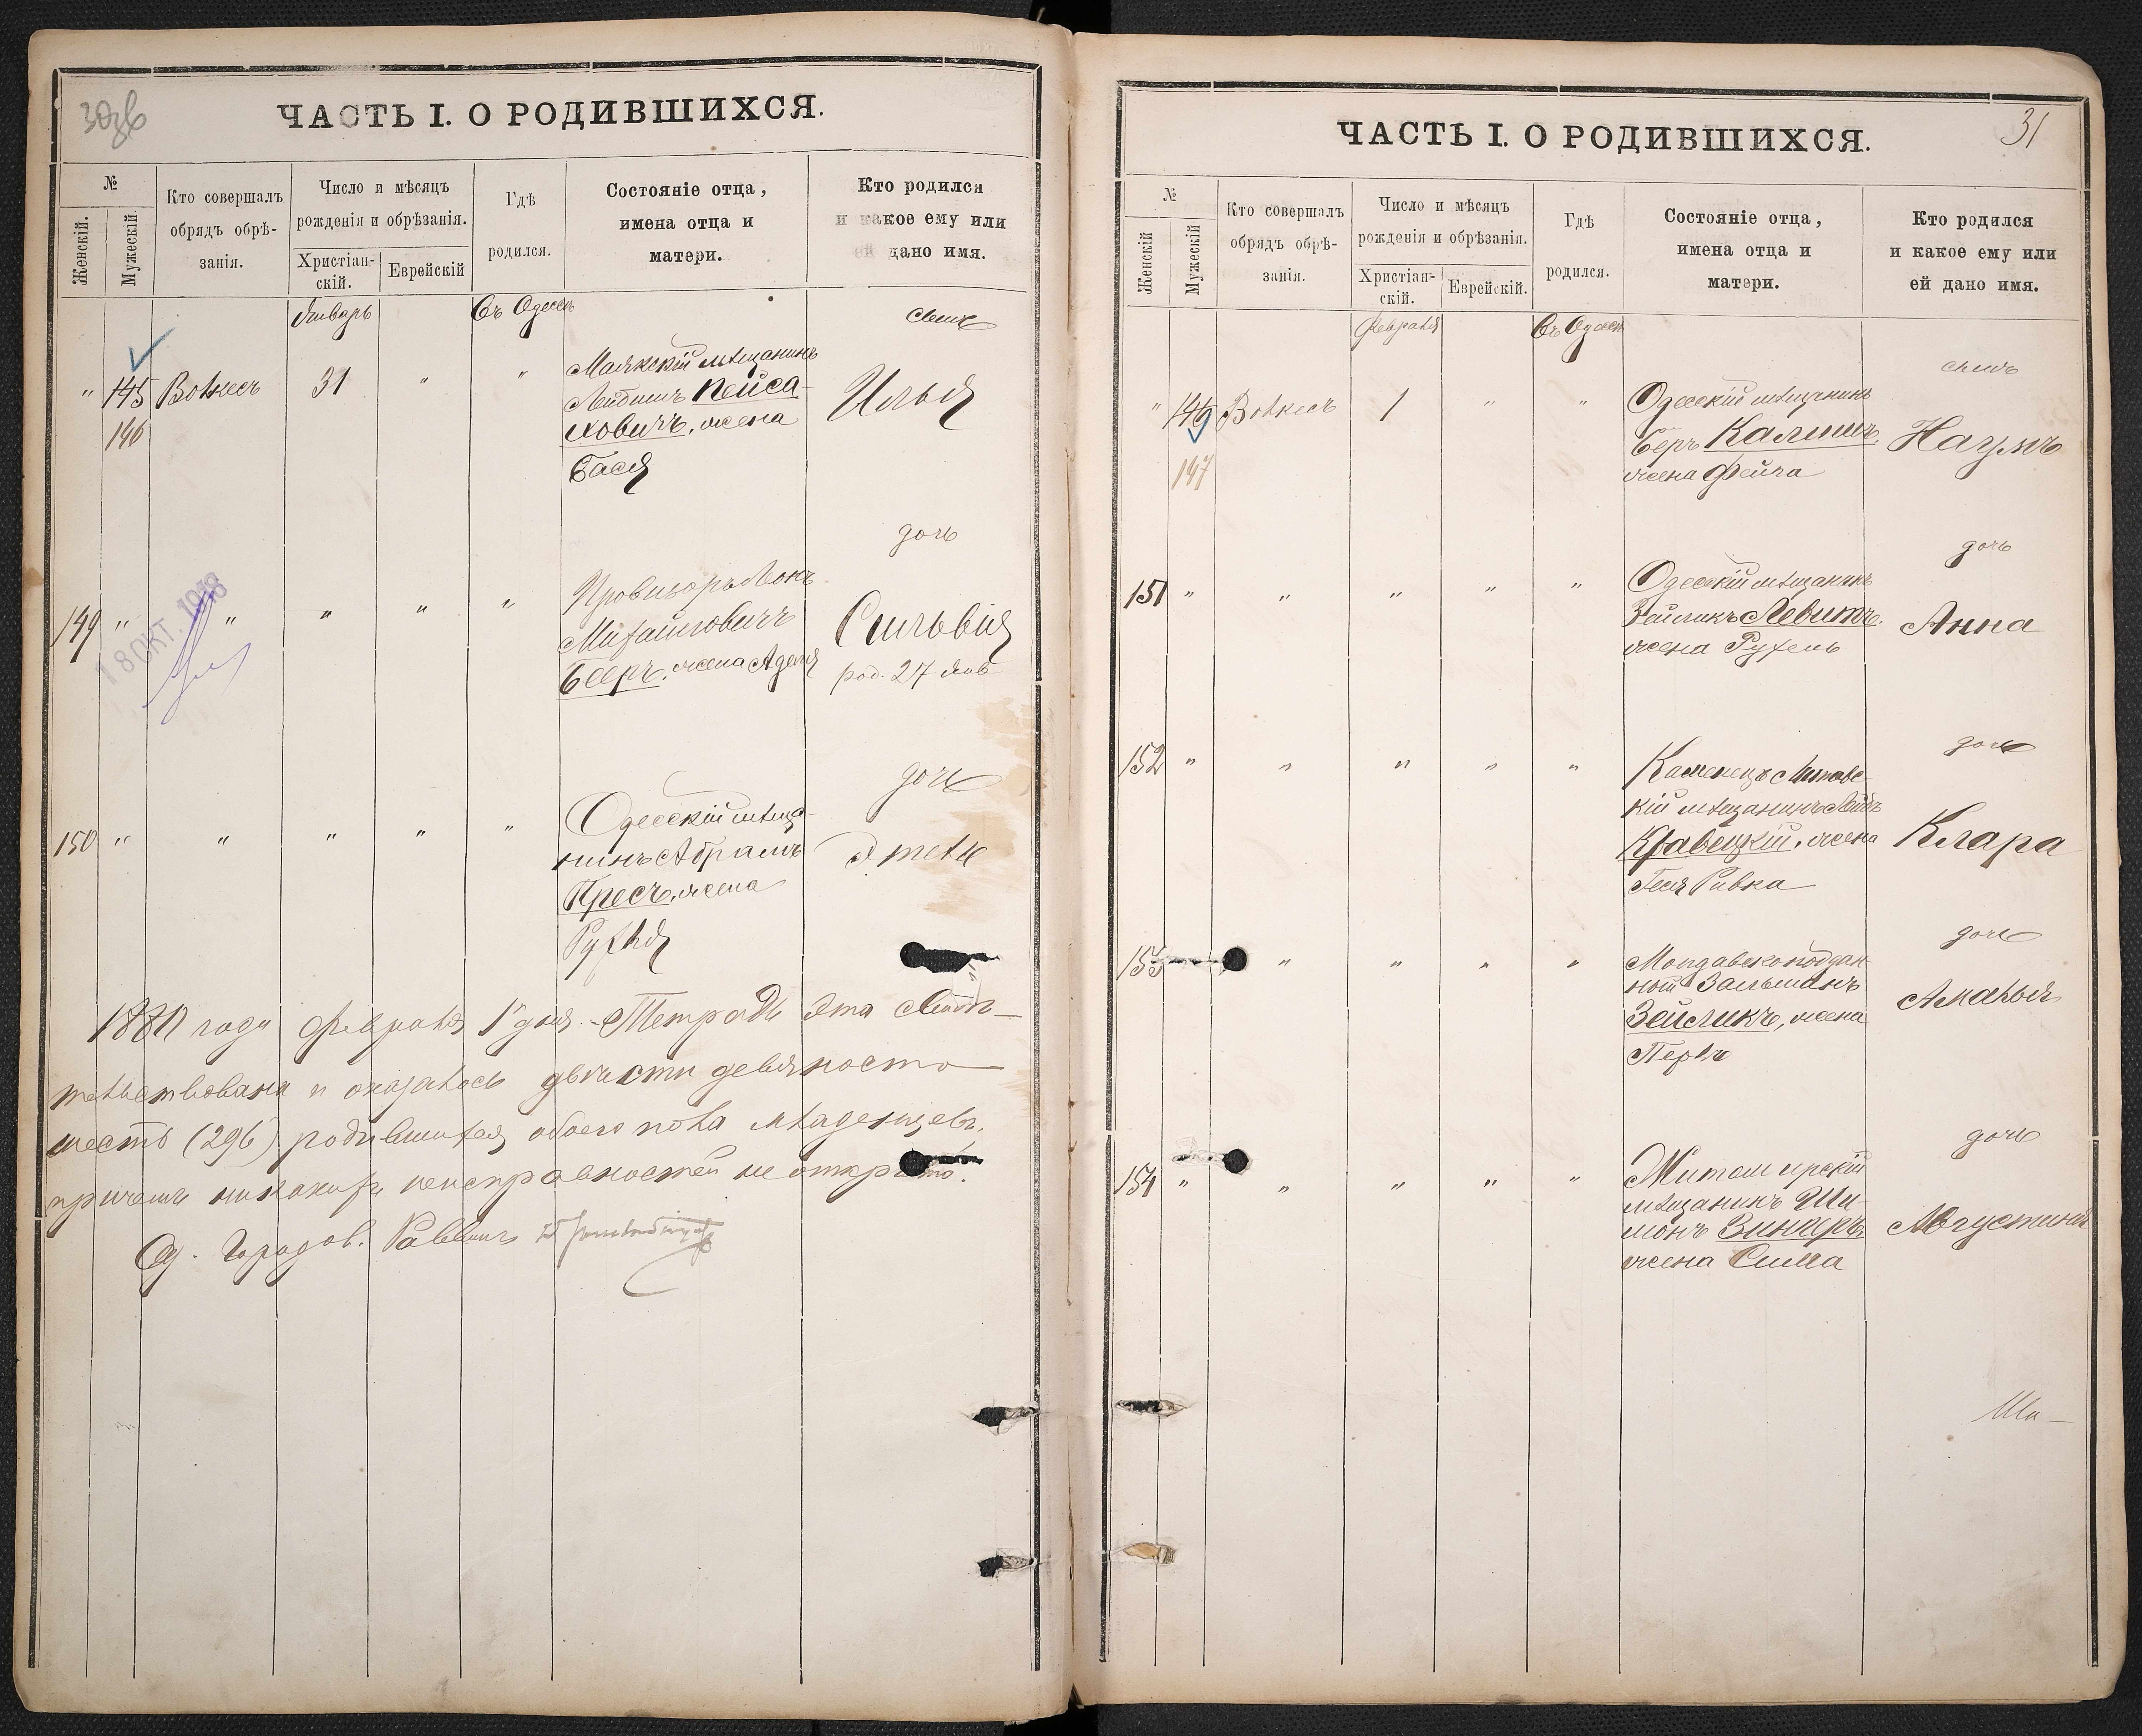 30 об
ЧАСТЬ I. О РОДИВШИХСЯ.
№
Женскій.
Мужескій.
Кто совершалъ
обрядъ обрѣ-
занія.
Число и мѣсяцъ
рожденія и обрѣзанія.
Христіан-
скій.
Еврейскій
Гдѣ
родился.
Состояніе отца,
имена отца и
матери.
Кто родился
и какое ему или
ей дано имя.
Январь
Въ Одессѣ
сынъ
" 145 Волкесъ 31 " "
146
Маякскій мѣщанинъ
Лейбишъ Пейса-
ховичъ, жена
Бася
Илья
дочь
149 " " " " "
18 ОКТ. 1918
Провизоръ Леонъ
Михайловичъ
Бееръ, жена Аделя
Сильвія
род. 27 янв
дочь
150 " " " " "
Одесскій мѣща-
нинъ Абрамъ
Пресъ, жена
Рухля
Этель
1880 года Февраля 1 дня. Тетрадь эта свидѣ-
тельствована и оказалось двѣсти девяносто
шесть (296) родившихся обоего пола младенцевъ.
причемъ никакихъ неисправностей не открыто.
Од. Городов. Раввинъ
31
ЧАСТЬ I. О РОДИВШИХСЯ.
№
Женскій
Мужескій
Кто совершалъ
обрядъ обрѣ-
занія.
Число и мѣсяцъ
рожденія и обрѣзанія.
Христіан-
скій.
Еврейскій.
Гдѣ
родился.
Состояніе отца,
имена отца и
матери.
Кто родился
и какое ему или
ей дано имя.
Февраля
Въ Одессѣ
сынъ
" 146 Волкесъ 1 " "
147
Одесскій мѣщанинъ
Беръ Калишъ,
жена Фейга
Наумъ
дочь
151 " " " " "
Одесскій мѣщанинъ
Зайликъ Левитъ,
жена Рухель
Анна
дочь
152 " " " " "
Каменецъ Литовс-
кій мѣщанинъ Лейбъ
Кравецкій, жена
Геся Ривка
Клара
дочь
153 " " " "
Молдавскоподдан-
ный Зальманъ
Зейликъ, жена
Перль
Амалья
дочь
154 " " " " "
Житомирскій
мѣщанинъ Ши-
монъ Зингеръ,
жена Сима
Августина